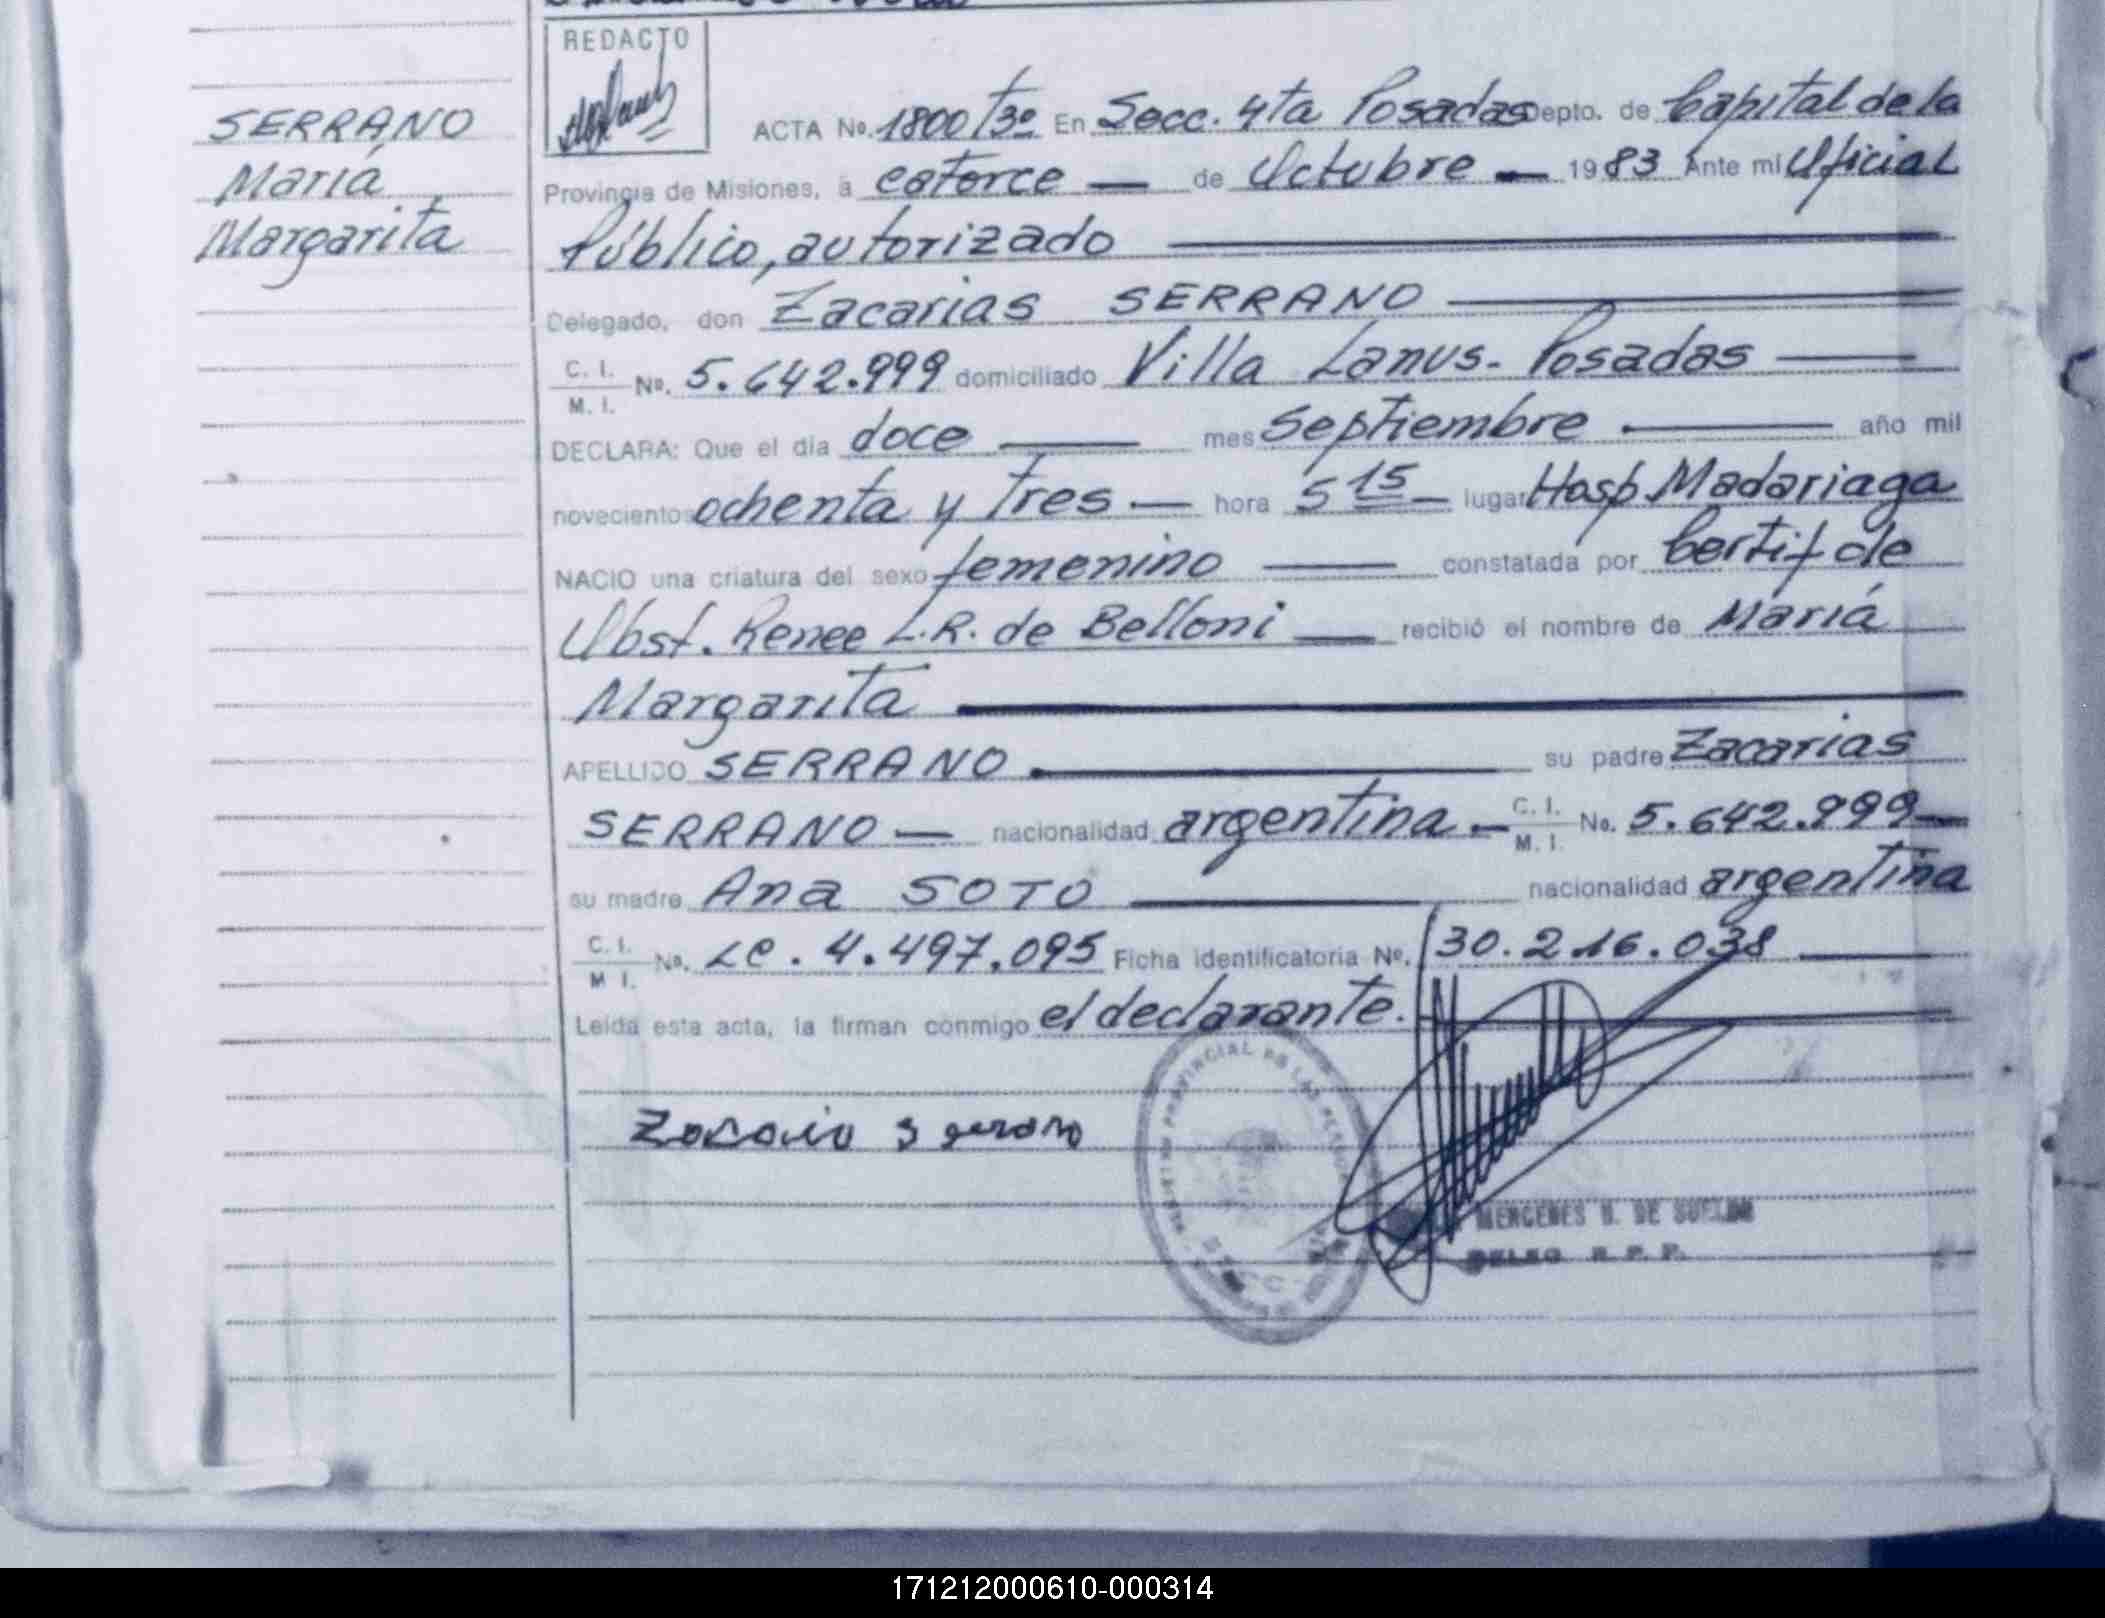 REDACTO
SERRANO
Mariá
Margarita
ACTA No. 1800 T3º En Secc. 4ta Posadas Depto. de Capital de la
Provincia de Misiones, a catorce — de Octubre — 1983 Ante mi Oficial
Público, autorizado
Delegado, don Zacarias SERRANO
C. I.
M. I. No. 5.642.999 domiciliado Villa Lanus - Posadas
DECLARA: Que el día doce — mes Septiembre — año mil
novecientos ochenta y tres — hora 5 15 — lugar Hosp. Madariaga
NACIO una criatura del sexo femenino — constatada por Certif de
Obst. Renee L.R. de Belloni — recibió el nombre de Mariá
Margarita
APELLIDO SERRANO — su padre Zacarias
SERRANO — nacionalidad argentina — C. I. M. I. No. 5.642.999 —
su madre Ana SOTO — nacionalidad argentina
C. I.
M I. No. LC. 4.497.095 Ficha identificatoria No. 30.216.038
Leída esta acta, la firman conmigo el declarante.
PROVINCIAL DE LAS
DE SUELDO
R. P. P.
171212000610-000314